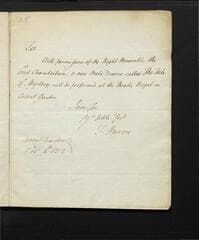 25
Sir
With permission of the Right Honorable the
Lord Chamberlain, a new Melo Drama called The Aſh
of Mystery will be performed at the Theatre Royal in
Covent Garden
I am Sir
Yr Obdt Servt
J. Harris
Covent Garden
1812